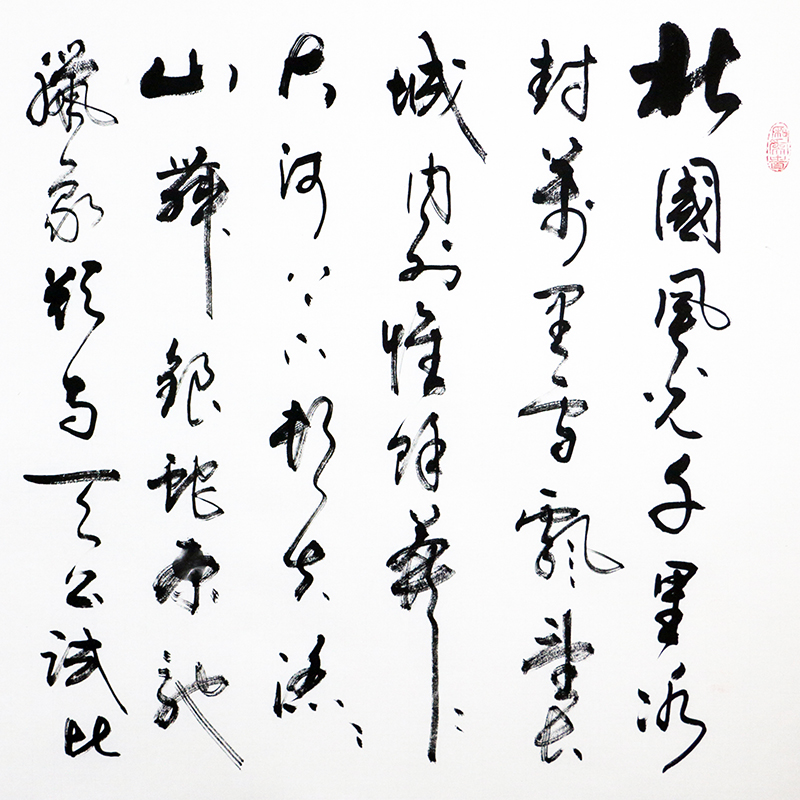 北國風光千里冰
封萬里雪飄望長
城內外惟餘莽〻
大河上下頓失滔〻
山舞銀蛇原馳
臘象欲與天公試比